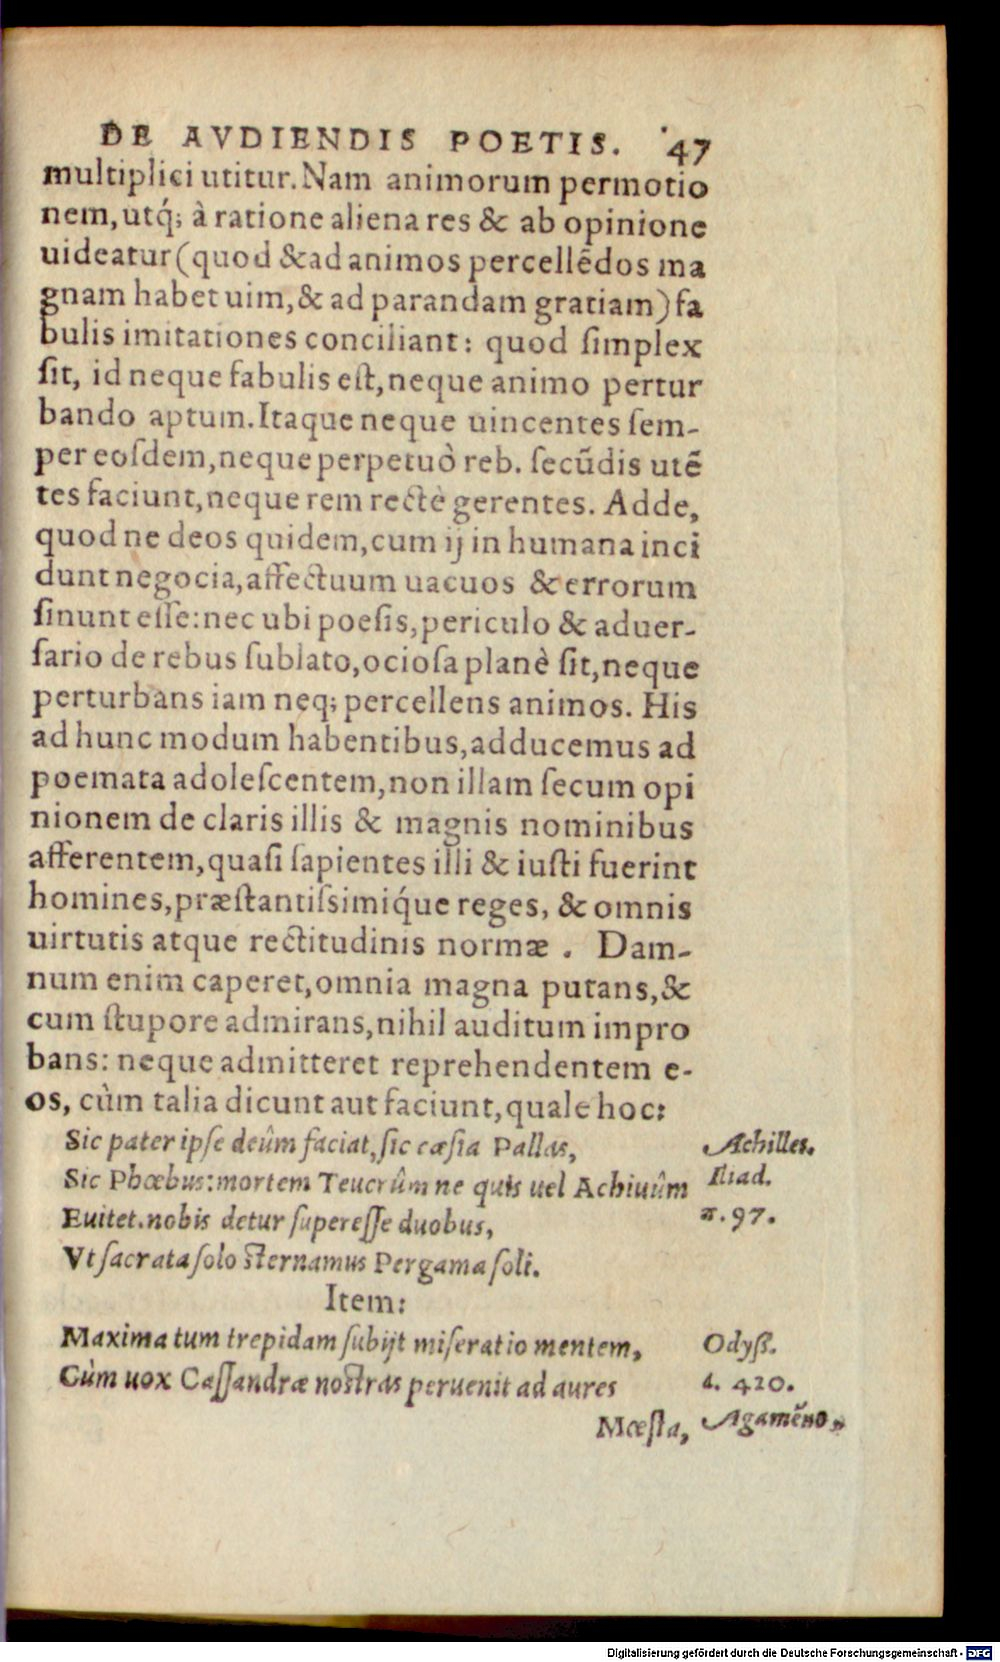 DE AVDIENDIS POETIS. 47
multiplici utitur. Nam animorum permotio
nem, utq́; à ratione aliena res & ab opinione
uideatur (quod & ad animos percellẽdos ma
gnam habet uim, & ad parandam gratiam) fa
bulis imitationes conciliant: quod ſimplex
ſit, id neque fabulis eſt, neque animo pertur
bando aptum. Itaque neque uincentes ſem-
per eoſdem, neque perpetuò reb. ſecũdis utẽ
tes faciunt, neque rem rectè gerentes. Adde,
quod ne deos quidem, cum ij in humana inci
dunt negocia, affectuum uacuos & errorum
ſinunt eſſe: nec ubi poeſis, periculo & aduer-
ſario de rebus ſublato, ocioſa planè ſit, neque
perturbans iam neq; percellens animos. His
ad hunc modum habentibus, adducemus ad
poemata adoleſcentem, non illam ſecum opi
nionem de claris illis & magnis nominibus
afferentem, quaſi ſapientes illi & iuſti fuerint
homines, præſtantiſsimiq́ue reges, & omnis
uirtutis atque rectitudinis normæ. Dam-
num enim caperet, omnia magna putans, &
cum ſtupore admirans, nihil auditum impro
bans: neque admitteret reprehendentem e-
os, cùm talia dicunt aut faciunt, quale hoc:
Sic pater ipſe deûm faciat, ſic cæſia Pallas, Achilles.
Sic Phœbus: mortem Teucrûm ne quis uel Achiuûm Iliad.
Euitet. nobis detur ſupereſſe duobus, π. 97.
Vt ſacrata ſolo ſternamus Pergama ſoli.
Item:
Maxima tum trepidam ſubijt miſeratio mentem, Odyſſ.
Cùm uox Caſſandræ noſtras peruenit ad aures λ. 420.
Mœſta, Agamẽno,,
Digitalisierung gefördert durch die Deutsche Forschungsgemeinschaft - DFG